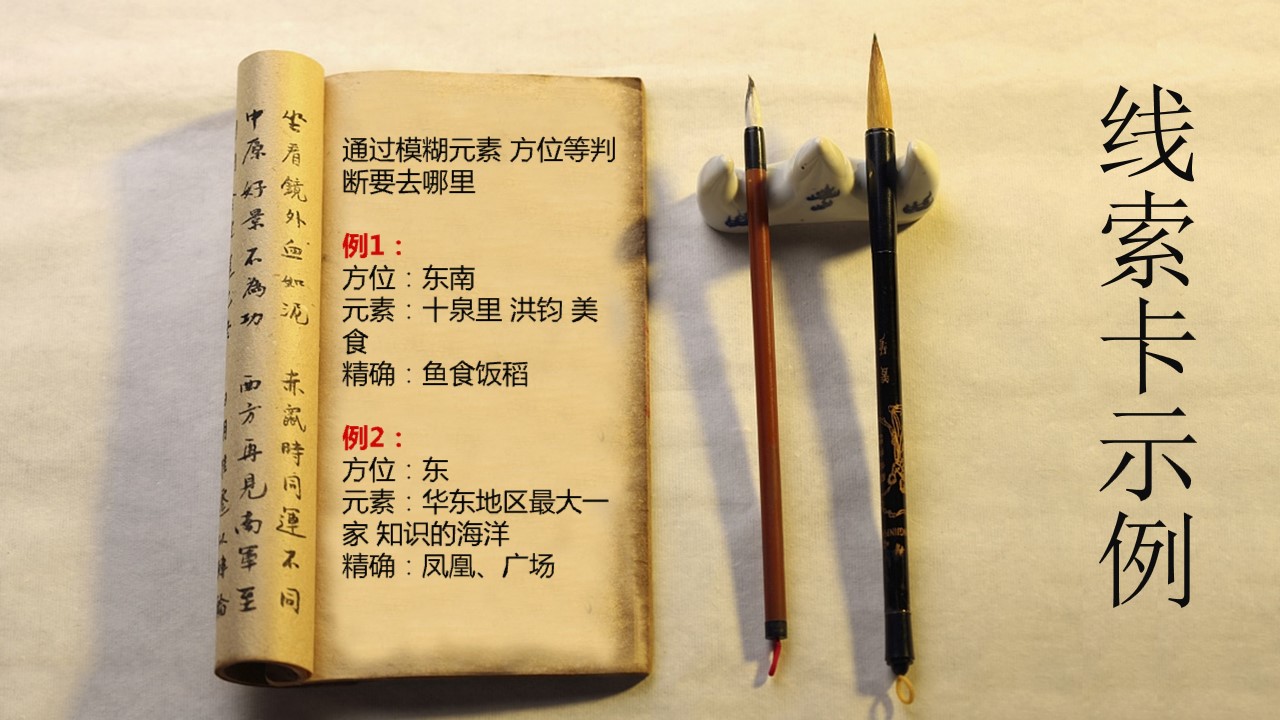 线索卡示例
通过模糊元素 方位等判
断要去哪里
例1：
方位：东南
元素：十泉里 洪钧 美
食
精确：鱼食饭稻
例2：
方位：东
元素：华东地区最大一
家 知识的海洋
精确：凤凰、广场
坐看鏡外血如泥 赤鼠時同運不同
中原好景不為功 西方再見南軍至